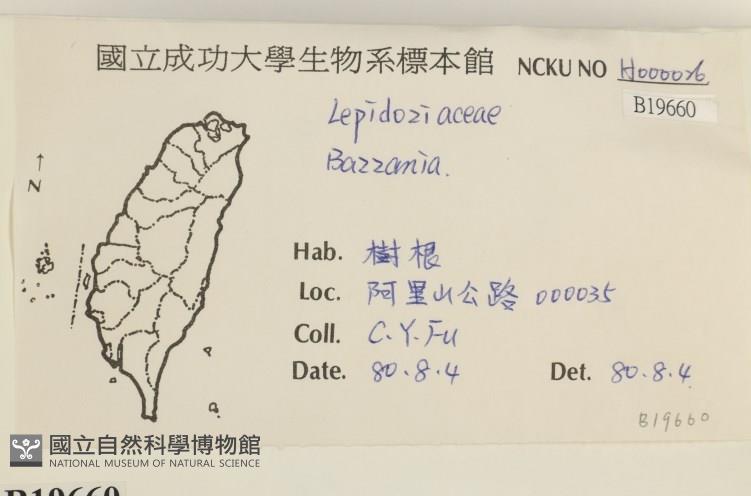 國立成功大學生物系標本館 NCKU NO H000026
B19660
Lepidoziaceae
Bazzania.
↑
N
Hab. 樹根
Loc. 阿里山公路 000035
Coll. C.Y.Fu
Date. 80.8.4 Det. 80.8.4
B19660
國立自然科學博物館
NATIONAL MUSEUM OF NATURAL SCIENCE
B19660